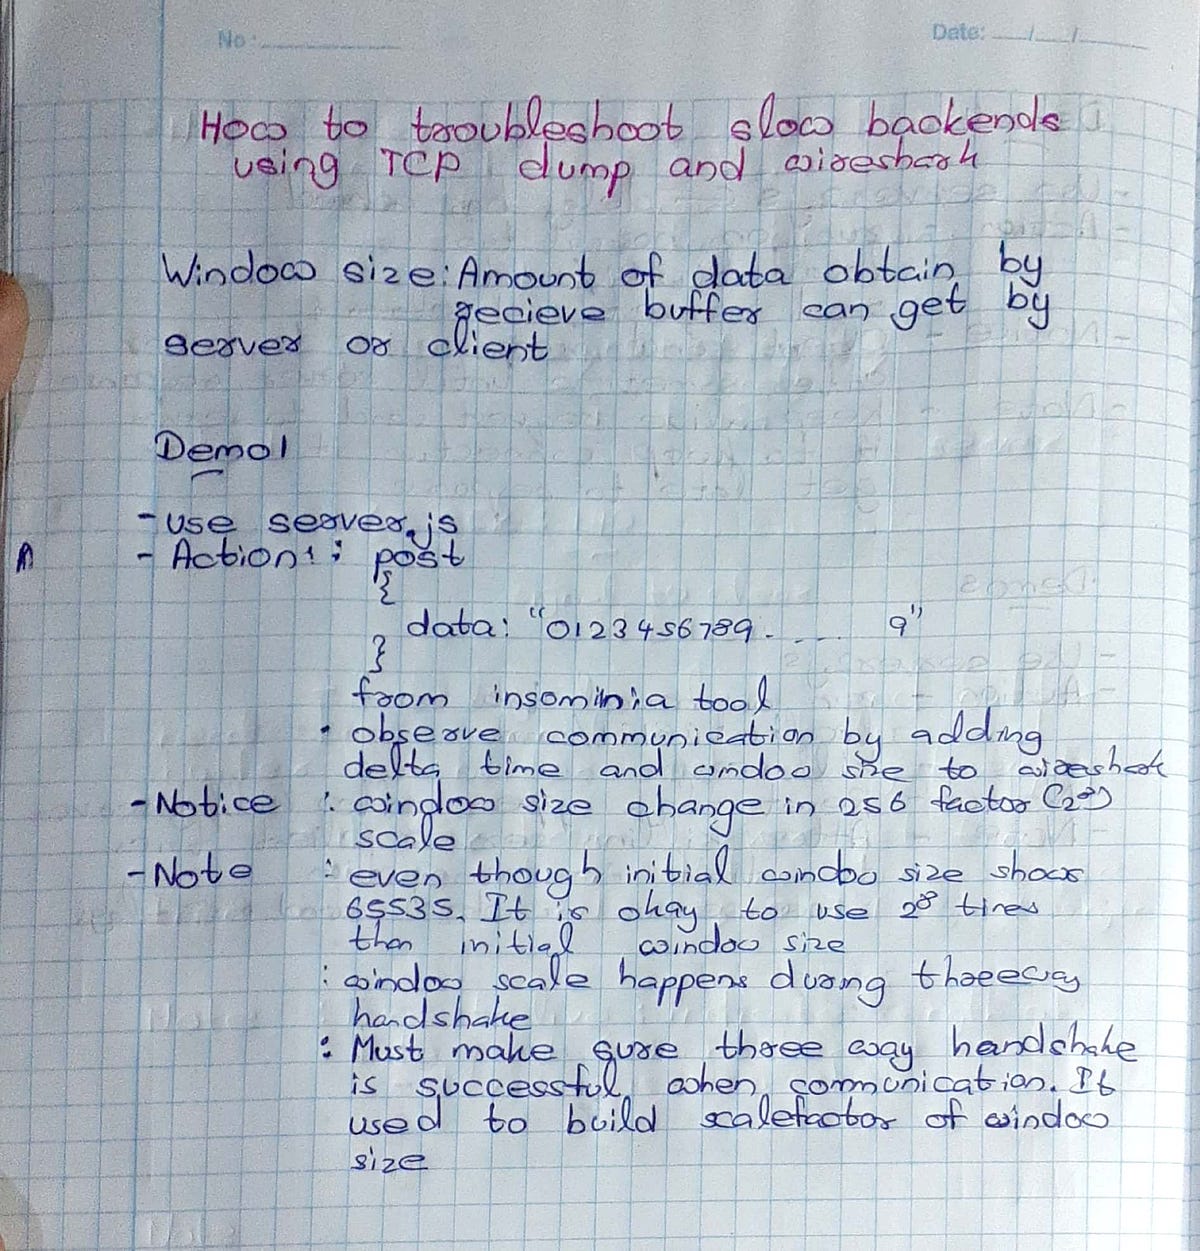 No:
Date: __/__/__
How to troubleshoot slow backends
using TCP dump and wireshark
Window size: Amount of data obtain by
recieve buffer can get by
server or client
Demo1
- use server.js
- Action1 : post
{
data: "0123456789. .... 9"
}
from insominia tool
• observe communication by adding
delta time and window size to wireshark
- Notice : window size change in 256 factor (2⁸)
scale
- Note : even though initial window size shows
65535. It is okay to use 2⁸ times
than initial window size
: window scale happens during threeway
handshake
: Must make sure three way handshake
is successful when communication. It
used to build scalefactor of window
size